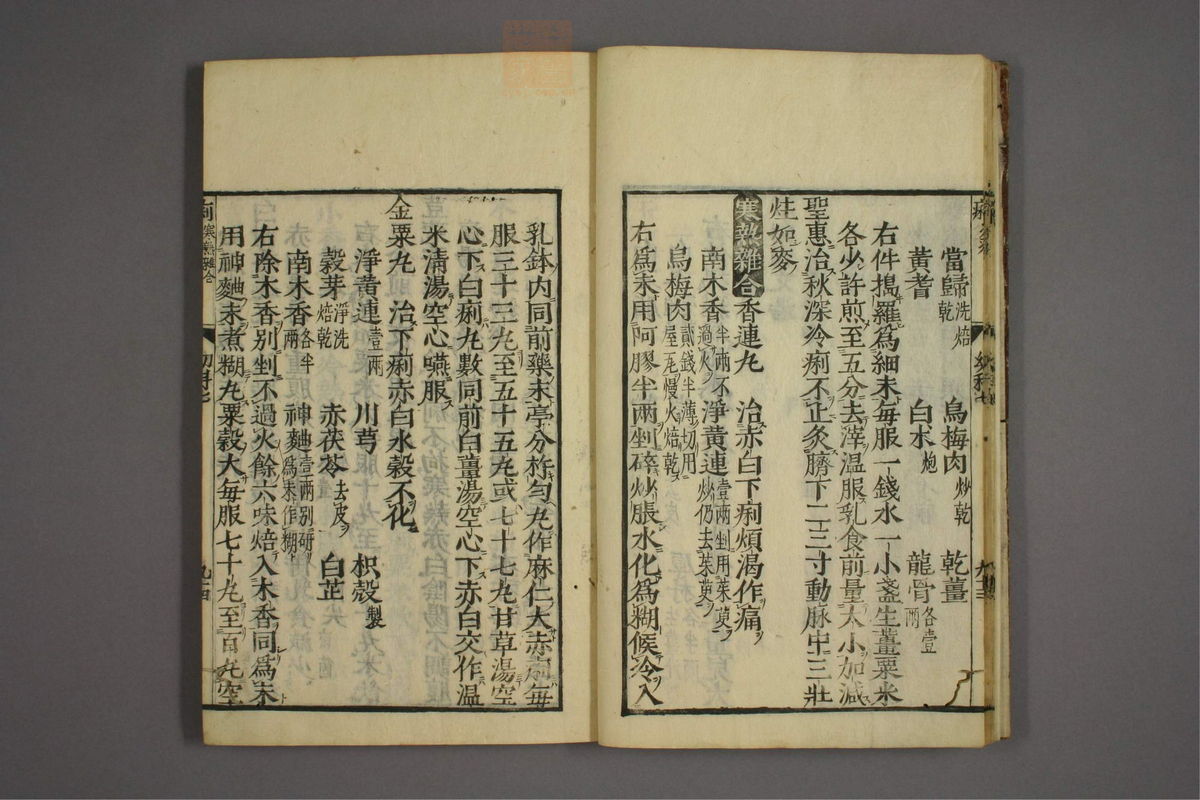 當歸洗焙乾 烏梅肉炒乾 乾薑
黃耆 白朮炮 龍骨各壹兩
右件搗羅爲細末每服一錢水一小盞生薑粟米
各少許煎至五分去滓溫服乳食前量大小加減
聖惠治秋深冷痢不止灸臍下二三寸動脉中三壯
炷如麥
寒熱雜合香連丸 治赤白下痢煩渴作痛
南木香半兩不過火 淨黃連壹兩剉用茱萸炒仍去茱萸
烏梅肉貳錢半薄切用屋瓦慢火焙乾
右爲末用阿膠半兩剉碎炒脹水化爲糊候冷入
乳鉢内同前藥末亭分杵勻丸作麻仁大赤痢每
服三十三丸至五十五丸或七十七丸甘草湯空
心下白痢丸數同前白薑湯空心下赤白交作溫
米清湯空心嚥服
金粟丸 治下痢赤白水穀不化
淨黃連壹兩 川芎 枳殼製
穀芽淨洗焙乾 赤茯苓去皮 白芷
南木香各半兩 神麯壹兩別研爲末作糊
右除木香別剉不過火餘六味焙入木香同爲末
用神麯末煮糊丸粟穀大每服七十丸至百丸空
痢寒熱雜合
幼科七
九十四